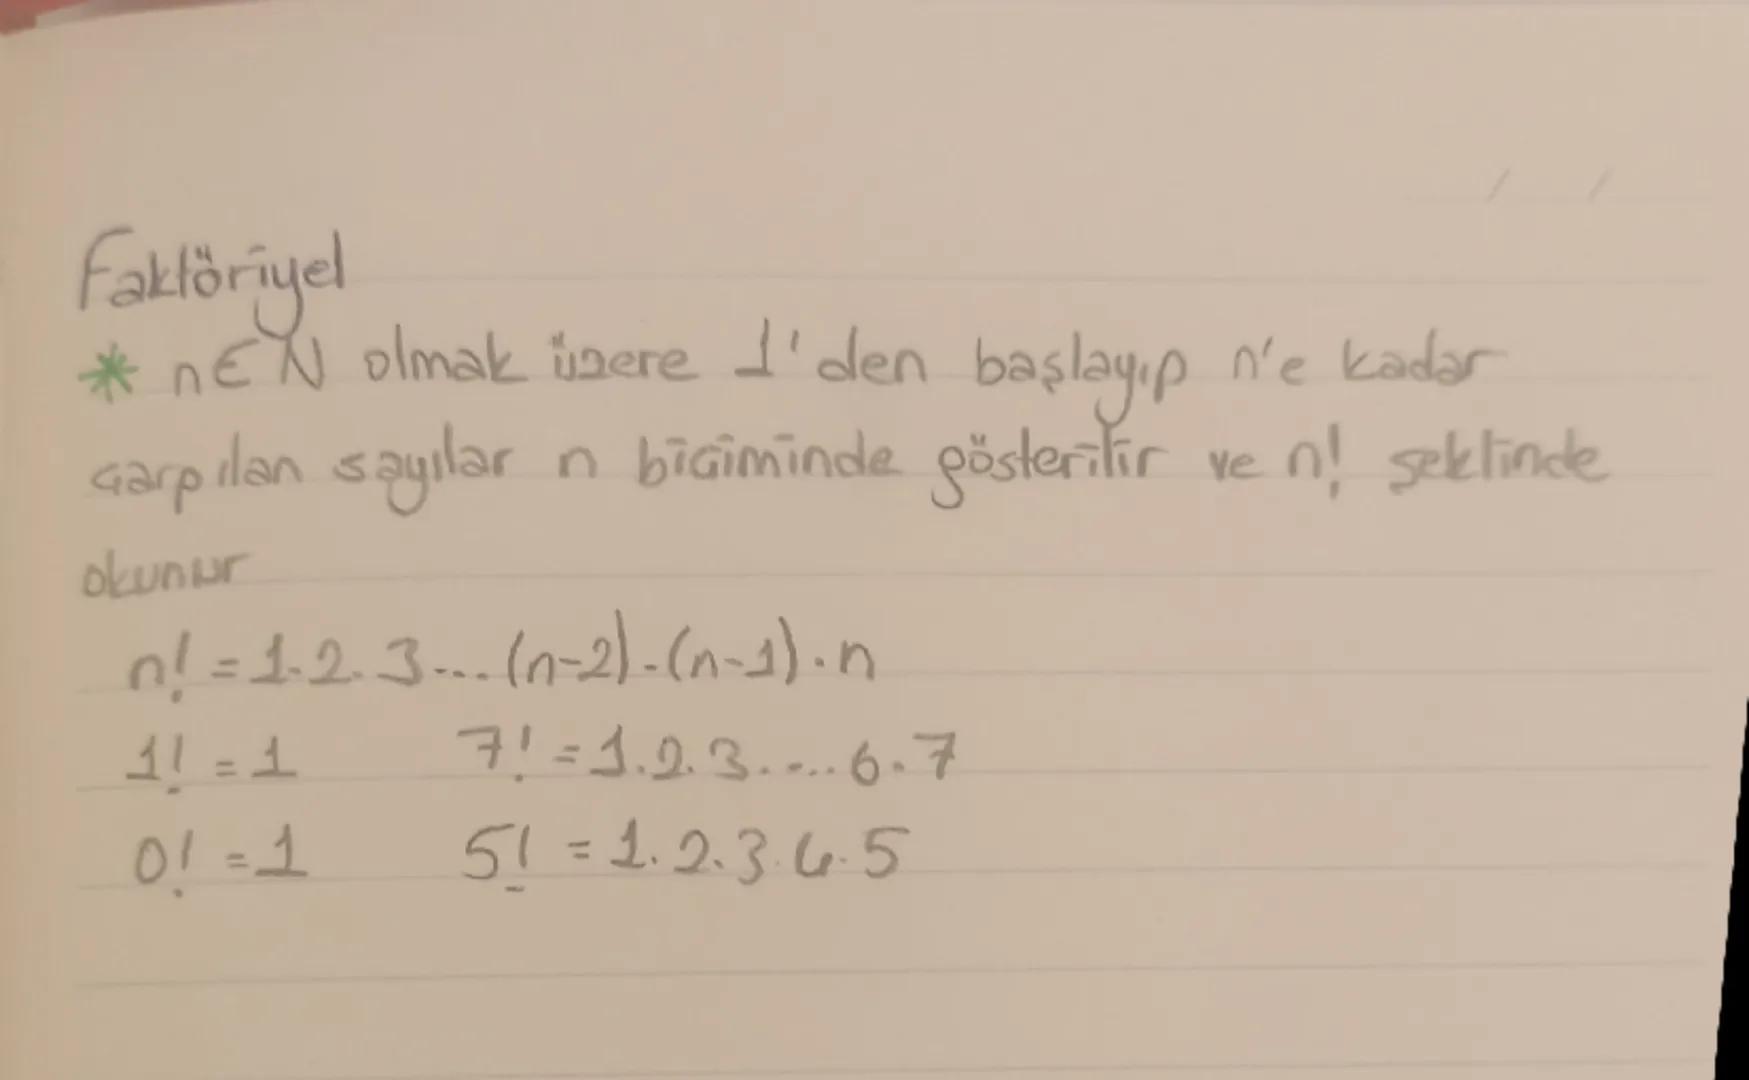 Faktöriyel
* n∈N olmak üzere 1'den başlayıp n'e kadar
çarpılan sayılar n biçiminde gösterilir ve n! şeklinde
okunur
n! = 1.2.3...(n-2).(n-1).n
1! = 1 7! = 1.2.3....6.7
0! = 1 5! = 1.2.3.4.5